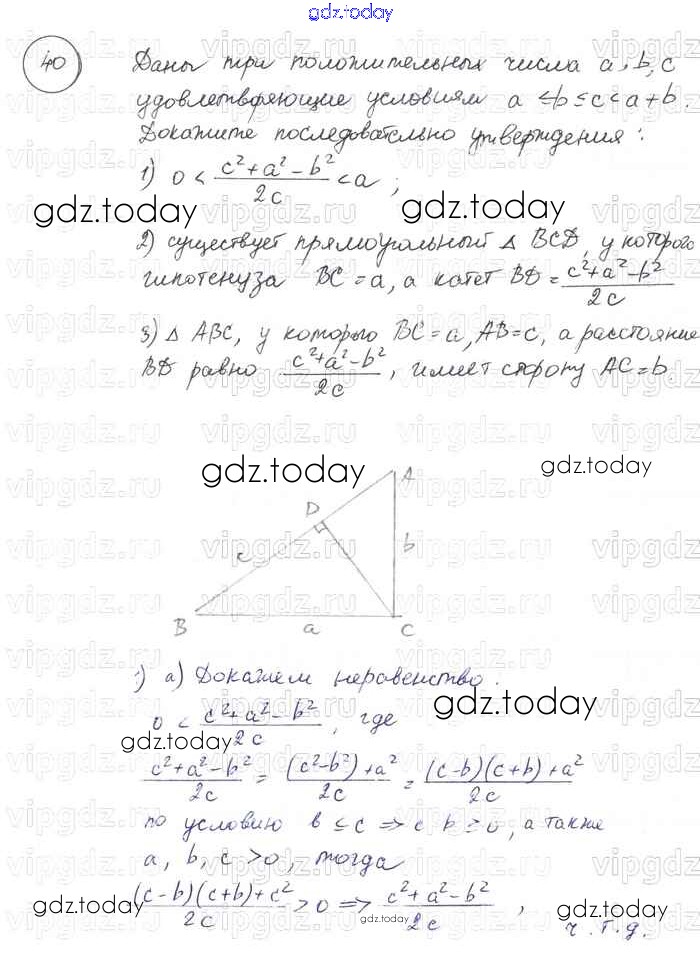 gdz.today
40
Даны три положительных числа a, b, c
удовлетворяющие условиям a ≤ b ≤ c < a + b.
Докажите последовательно утверждения:
1) 0 < (c² + a² − b²)/2c < a;
gdz.today gdz.today
2) существует прямоугольный △ BCD, у которого
гипотенуза BC = a, а катет BD = (c² + a² − b²)/2c
3) △ ABC, у которого BC = a, AB = c, а расстояние
BD равно (c² + a² − b²)/2c, имеет сторону AC = b
gdz.today gdz.today
A
D
c b
B a C
1) а) Докажем неравенство:
0 < (c² + a² − b²)/2c, где
gdz.today gdz.today
(c² + a² − b²)/2c = ((c² − b²) + a²)/2c = ((c − b)(c + b) + a²)/2c
по условию b ≤ c ⇒ c b ≥ 0, а также
a, b, c > 0, тогда
((c − b)(c + b) + c²)/2c > 0 ⇒ (c² + a² − b²)/2c,
gdz.today gdz.today gdz.today
ч.т.д.
vipgdz.ru